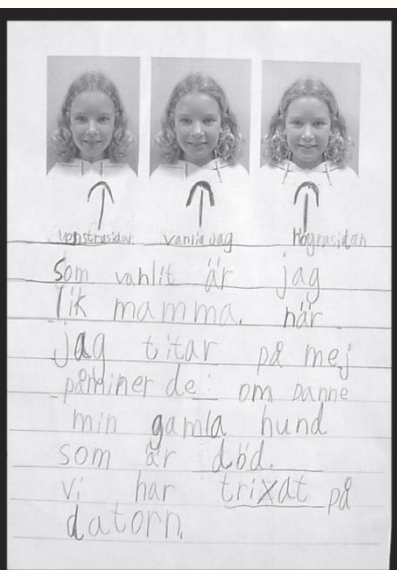 venstrasidan vanlia jag högrasidan
som vanlit är jag
lik mamma. när
jag titar på mej
påminer de om Danne
min gamla hund
som är död.
vi har trixat på
datorn.